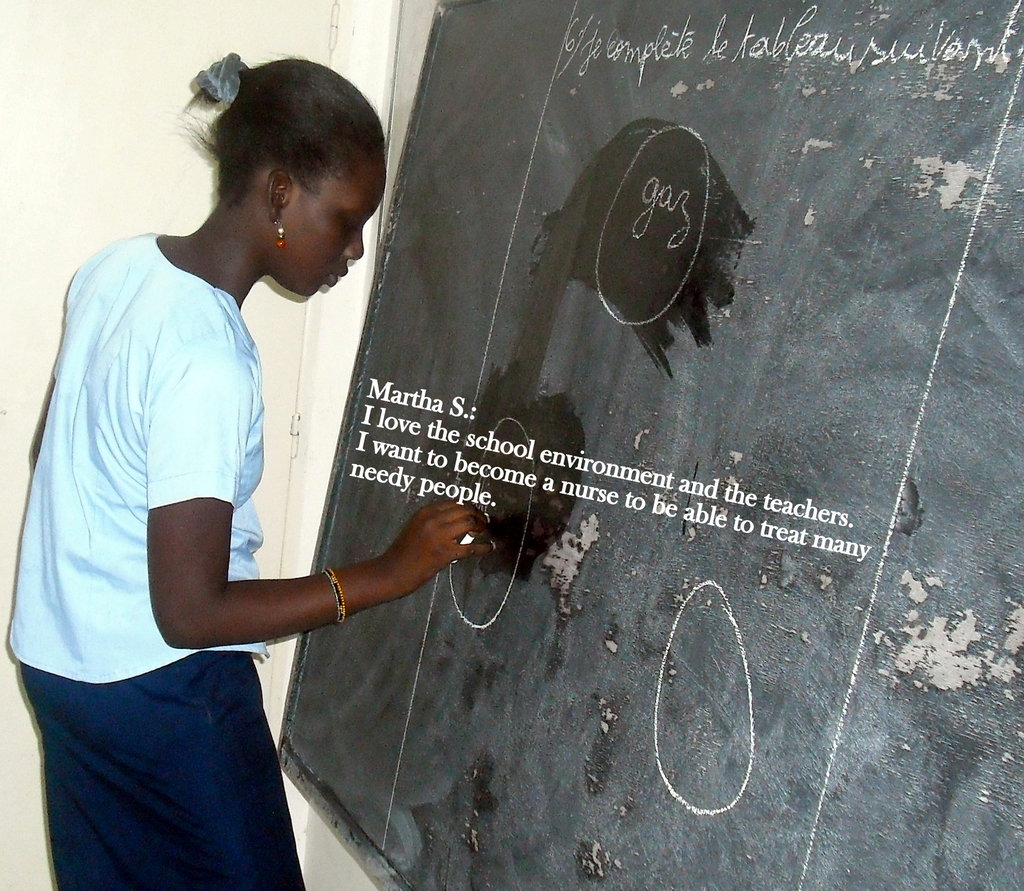 6/ Je complète le tableau suivant
gaz
Martha S.:
I love the school environment and the teachers.
I want to become a nurse to be able to treat many
needy people.